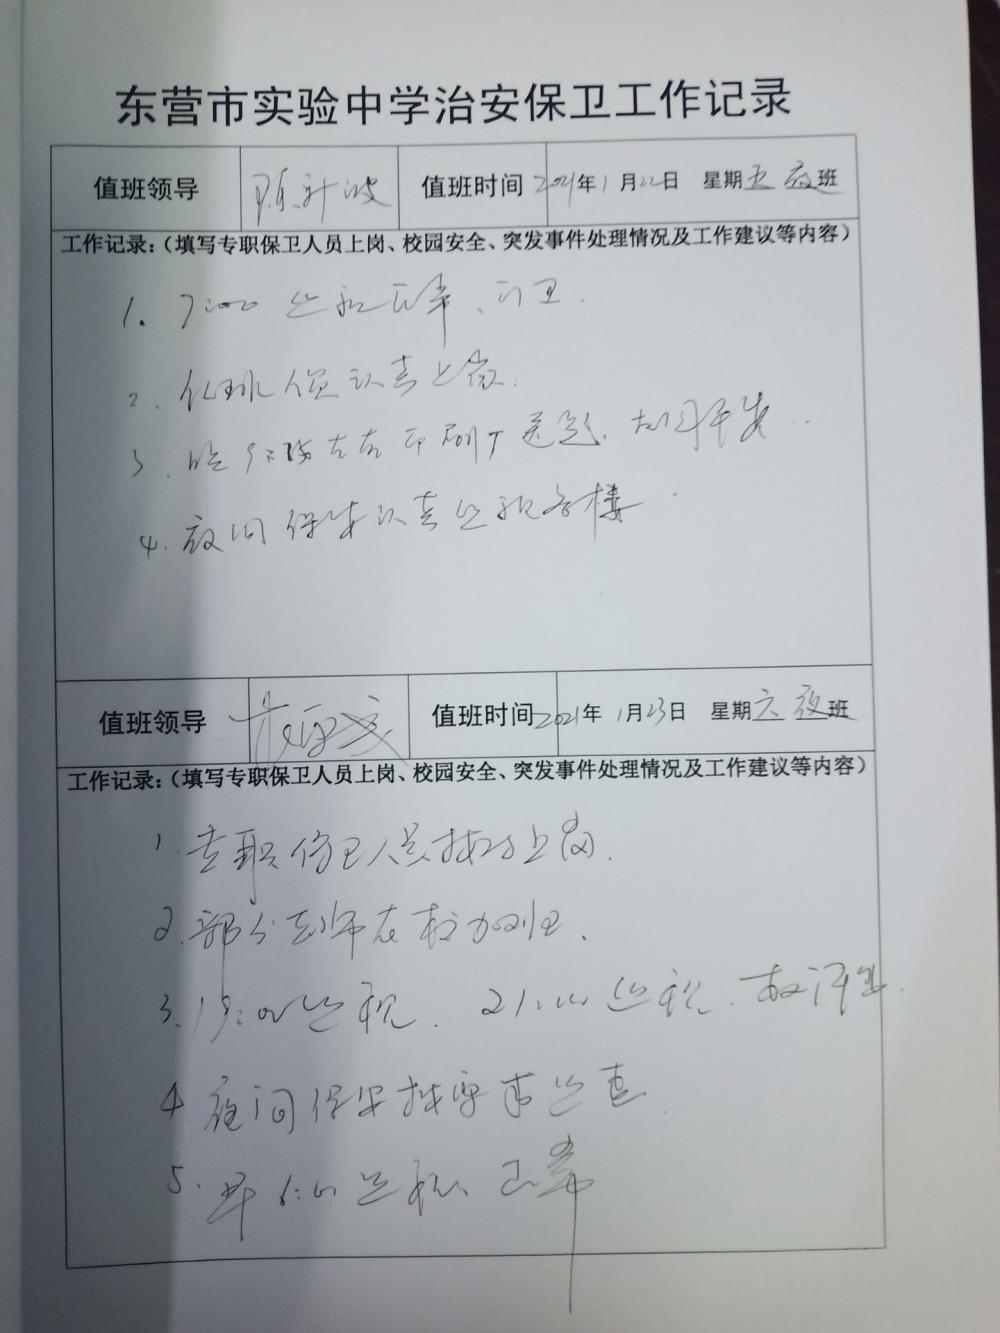 东营市实验中学治安保卫工作记录
值班领导 陈新波 值班时间 2021年1月22日 星期五夜班
工作记录:(填写专职保卫人员上岗、校园安全、突发事件处理情况及工作建议等内容)
1. 7:00 巡视正常、
2. 人员认真上岗.
3. 印刷厂送
4. 夜间保安认真巡视各楼
值班领导 值班时间 2021年1月23日 星期六夜班
工作记录:(填写专职保卫人员上岗、校园安全、突发事件处理情况及工作建议等内容)
1. 专职保卫人员按时上岗.
2. 部分老师在校加班.
3. 19:00巡视. 21:00巡视.
4 夜间保安按要求巡查
5. 早6:00巡视正常